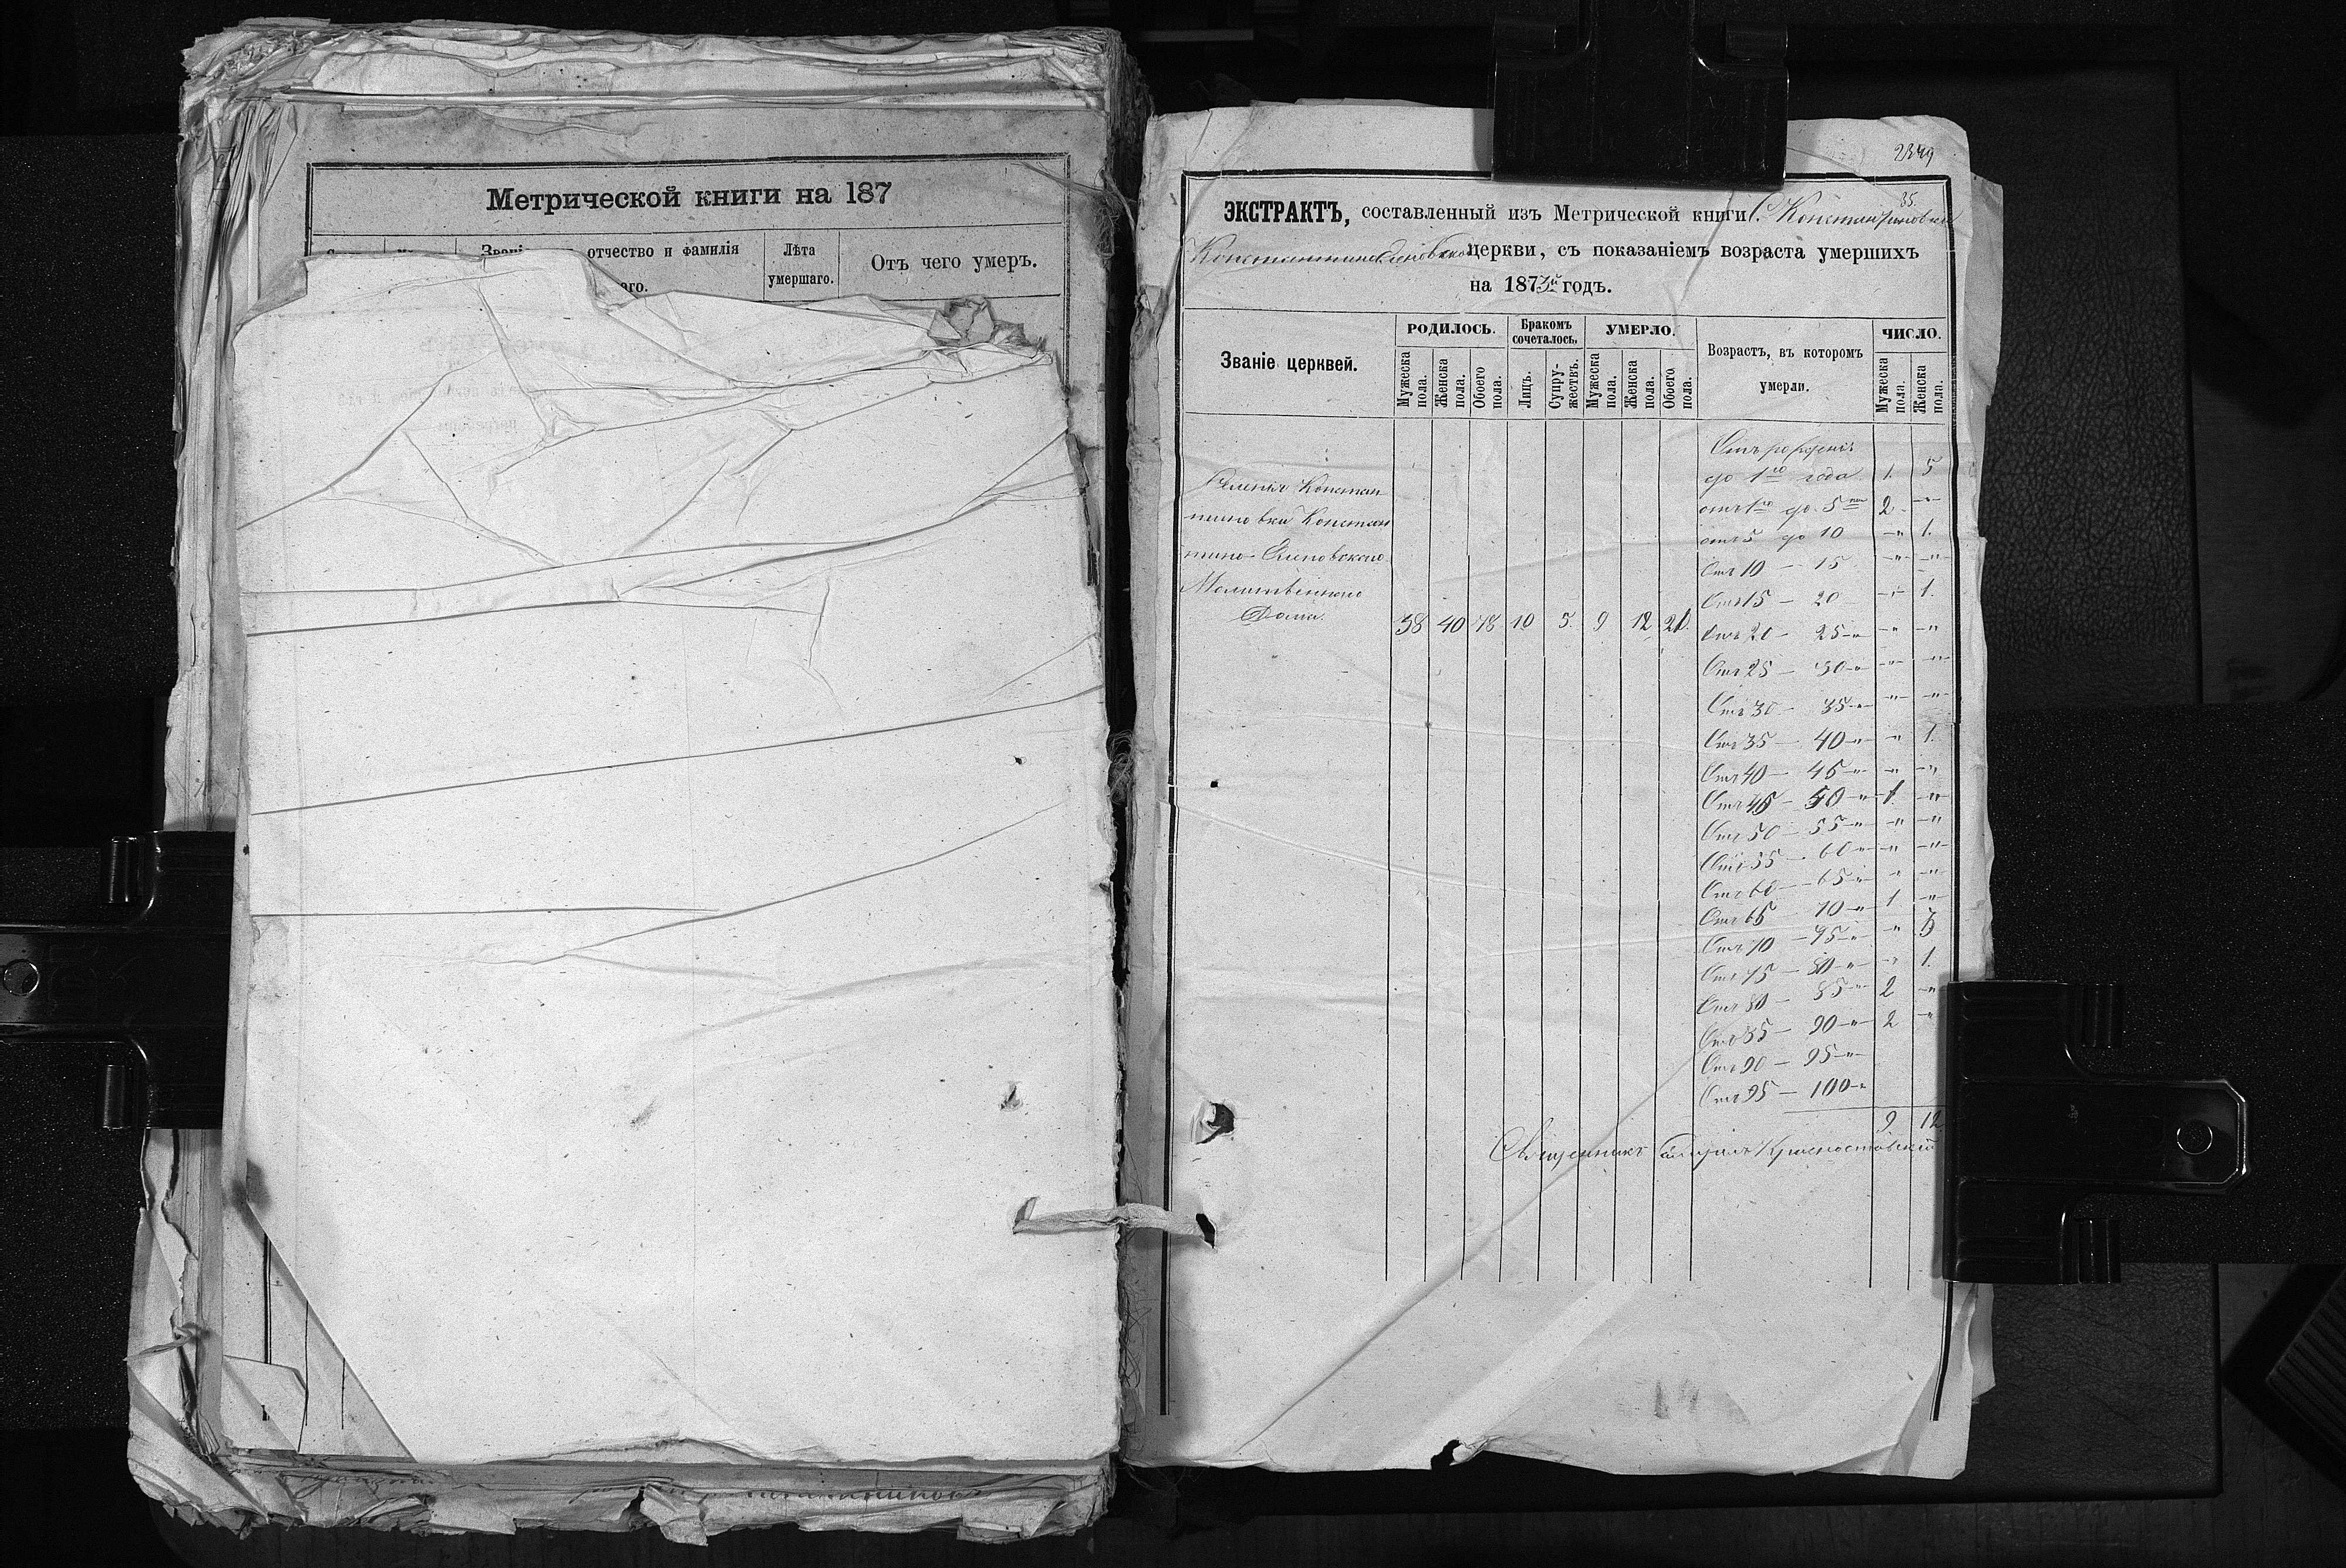 Метрической книги на 187
отчество и фамилія
Лѣта умершаго.
Отъ чего умеръ.
2349
35.
ЭКСТРАКТЪ, составленный изъ Метрической книги С. Константиновки
Константино Еленовской церкви, съ показаніемъ возраста умершихъ
на 1873й годъ.
Званіе церквей.
РОДИЛОСЬ.
Мужеска пола.
Женска пола.
Обоего пола.
Бракомъ сочеталось.
Лицъ.
Супружествъ.
УМЕРЛО.
Мужеска пола.
Женска пола.
Обоего пола.
Возрастъ, въ которомъ умерли.
ЧИСЛО.
Мужеска пола.
Женска пола.
Селенія Констан
тиновки Констан
тино-Еленовскаго
Молитвеннаго
Дома.
38 40 78 10 5. 9 12 21.
Отъ рожденія
до 1го года 1. 5
отъ 1го до 5ти 2 -"-
отъ 5 до 10 -"- 1.
Отъ 10 — 15 -"- -"-
Отъ 15 — 20 -"- 1.
Отъ 20 — 25 -"- -"- -"-
Отъ 25 — 30 -"- -"- -"-
Отъ 30 — 35 -"- -"- -"-
Отъ 35 — 40 -"- -"- 1.
Отъ 40 — 45 -"- -"- -"-
Отъ 45 — 50 -"- 1. -"-
Отъ 50 — 55 -"- -"- -"-
Отъ 55 — 60 -"- -"- -"-
Отъ 60 — 65 -"- -"- -"-
Отъ 65 — 70 -"- 1 -"-
Отъ 70 — 75 -"- -"- 3
Отъ 75 — 80 -"- -"- 1.
Отъ 80 — 85 -"- 2 -"-
Отъ 85 — 90 -"- 2 -"-
Отъ 90 — 95 -"-
Отъ 95 — 100 -"-
9 12
Священникъ Гавріилъ